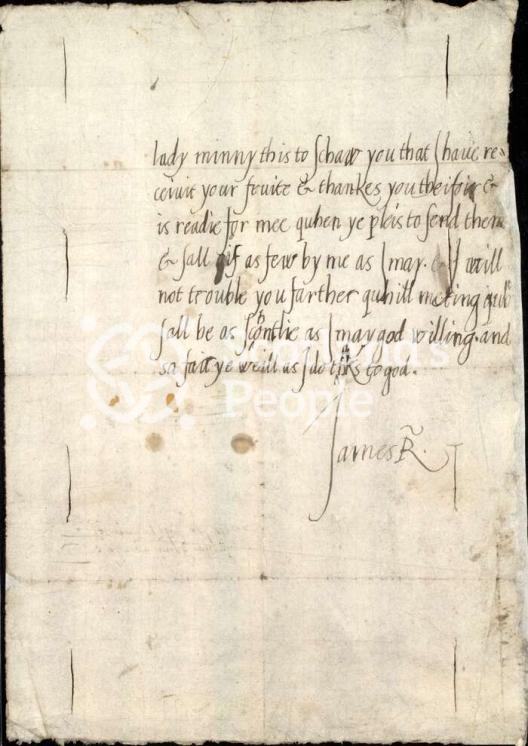 lady minny this to schaw you that I have re-
ceivit your fruite & thankes you theifoir &
is readie for mee quhen ye pleis to send them
& sall gif as few by me as I may. & I will
not trouble you farther quhill meting quhilk
sall be as schortlie as I may god willing. and
sa fair ye weill as I do thks to god.
James R.
Scotland's
People